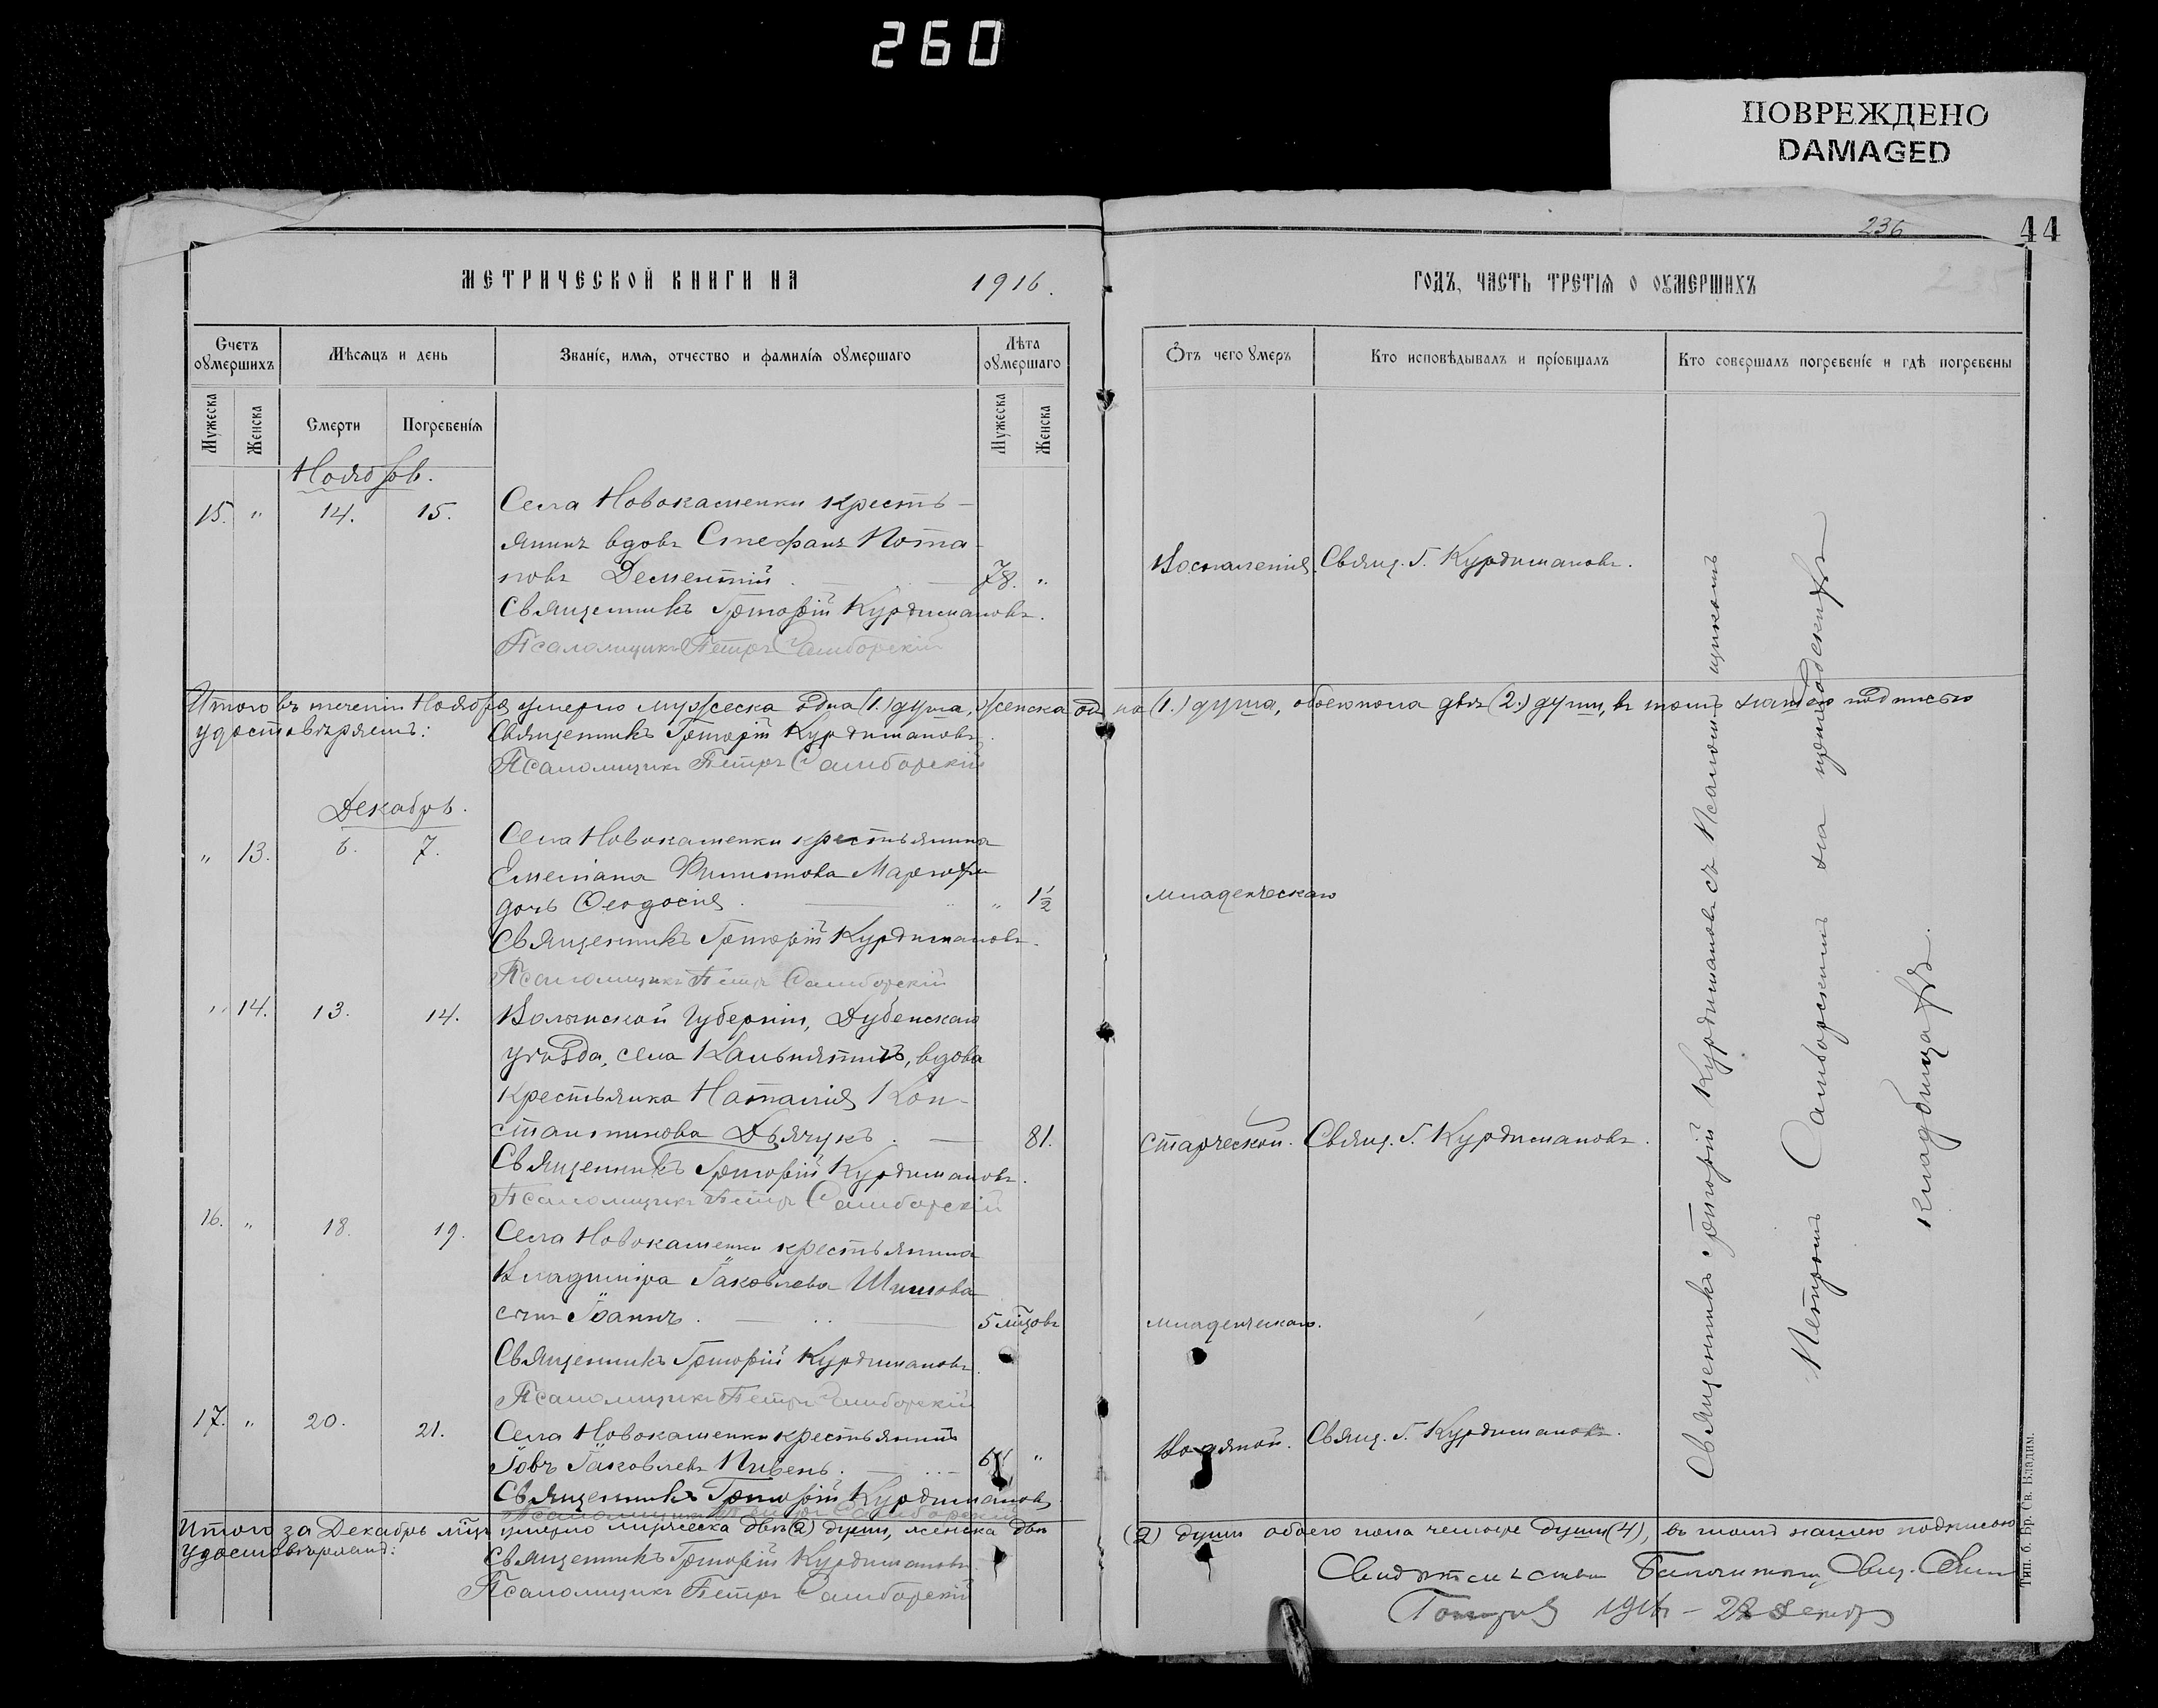 260
ПОВРЕЖДЕНО
DAMAGED
236
44
235
МЕТРИЧЕСКОЙ КНИГИ НА 1916. ГОДЪ, ЧАСТЬ ТРЕТІЯ О ОУМЕРШИХЪ
Счетъ оумершихъ
Мѣсяцъ и день
Званіе, имя, отчество и фамилія оумершаго
Лѣта оумершаго
Отъ чего умеръ
Кто исповѣдывалъ и пріобщалъ
Кто совершалъ погребеніе и гдѣ погребены
Мужеска
Женска
Смерти
Погребенія
Мужеска
Женска
Ноябрь.
15. " 14. 15. Села Новокаменки кресть-
янинъ вдовъ Стефанъ Пота-
повъ Дементій. 78. " Воспаленія. Свящ. Г. Курдимановъ.
Священникъ Григорій Курдимановъ.
Псаломщикъ Петръ Самборскій
Итого въ теченіи Ноября умерло мужеска одна (1.) душа, женска одна (1.) душа, обоего пола двѣ (2.) души, въ томъ нашею подписью
удостовѣряемъ: Священникъ Григорій Курдимановъ.
Псаломщикъ Петръ Самборскій
Декабрь.
" 13. 6. 7. Села Новокаменки крестьянина
Емеліана Филиппова
дочь Ѳеодосія. " 1½ младенческаго
Священникъ Григорій Курдимановъ.
Псаломщикъ Петръ Самборскій
" 14. 13. 14. Волынской Губерніи, Дубенскаго
уѣзда, села вдова
крестьянка Наталія Кон-
стантинова Дьячукъ. 81. старческой. Свящ. Г. Курдимановъ.
Священникъ Григорій Курдимановъ.
Псаломщикъ Петръ Самборскій
16. " 18. 19. Села Новокаменки крестьянина
Владиміра Іаковлева Шишова
сынъ Іоаннъ. 5 мѣцовъ младенческаго.
Священникъ Григорій Курдимановъ.
Псаломщикъ Петръ Самборскій
17. " 20. 21. Села Новокаменки крестьянинъ
Іовъ Іаковлевъ Пивень. " Водяной. Свящ. Г. Курдимановъ.
Священникъ Григорій Курдимановъ
Псаломщикъ Петръ Самборскій
Итого за Декабрь мцъ умерло мужеска двѣ (2) души, женска двѣ (2) души обоего пола четыре души (4), въ томъ нашею подписью
удостовѣряемъ:
Священникъ Григорій Курдимановъ.
Псаломщикъ Петръ Самборскій
1916 - 28 Декабр
Священникъ Григорій Курдимановъ съ Псаломщикомъ
Петромъ Самборскимъ на приходскихъ
кладбищахъ.
Тип. б. Бр. Св. Владим.